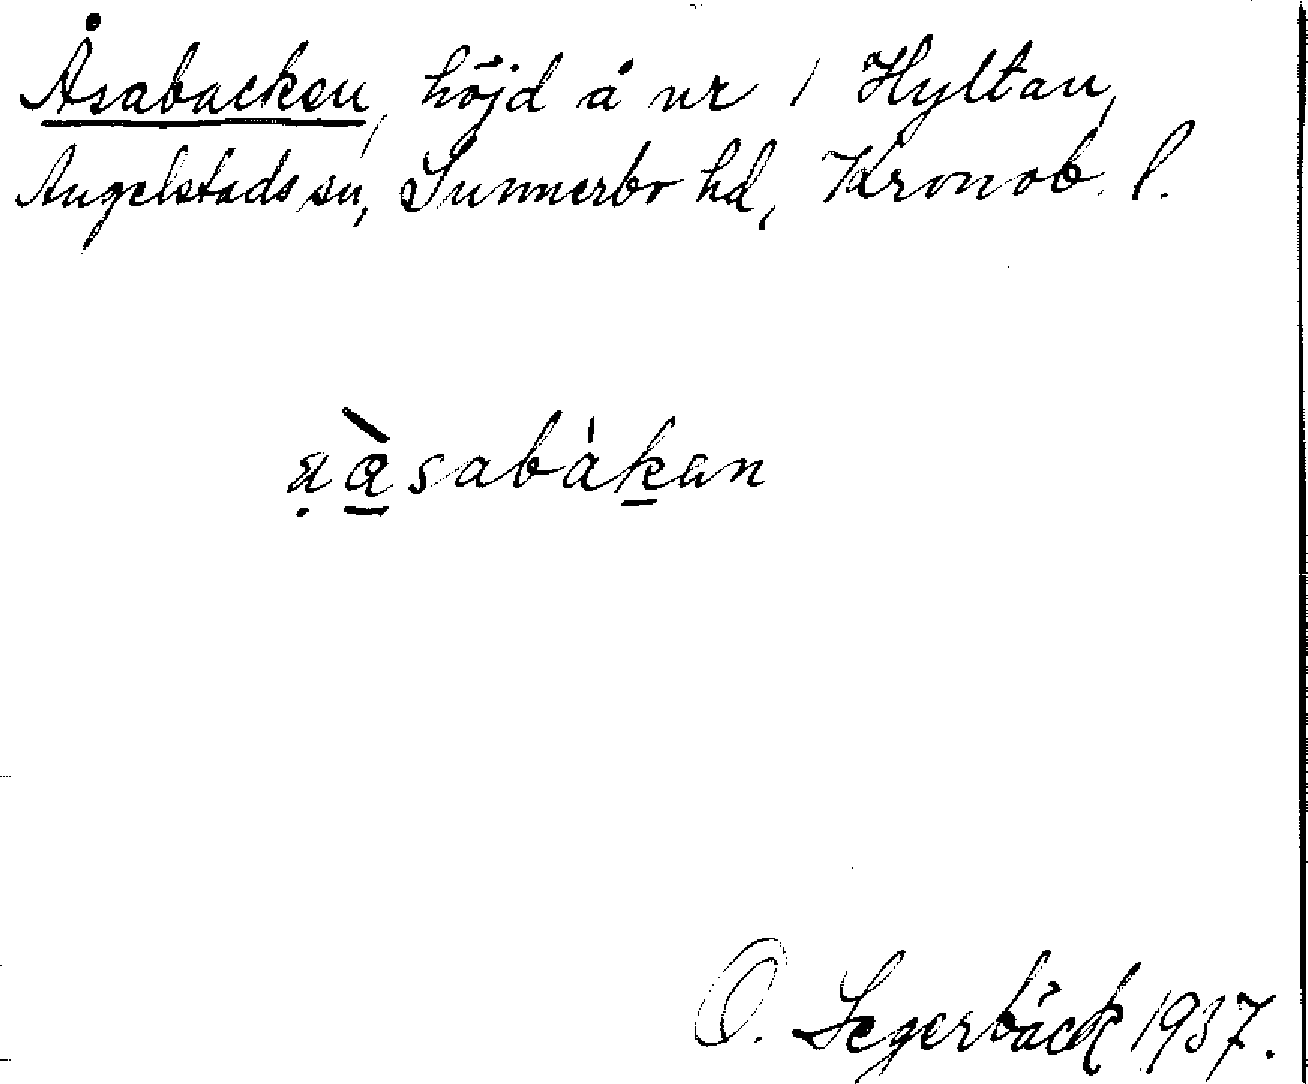 Åsabacken, höjd å nr 1 Hyltan,
Angelstads sn, Sunnerbo hd, Kronob. l.
ạà̱sabáḵan
O. Segerbäck 1937.